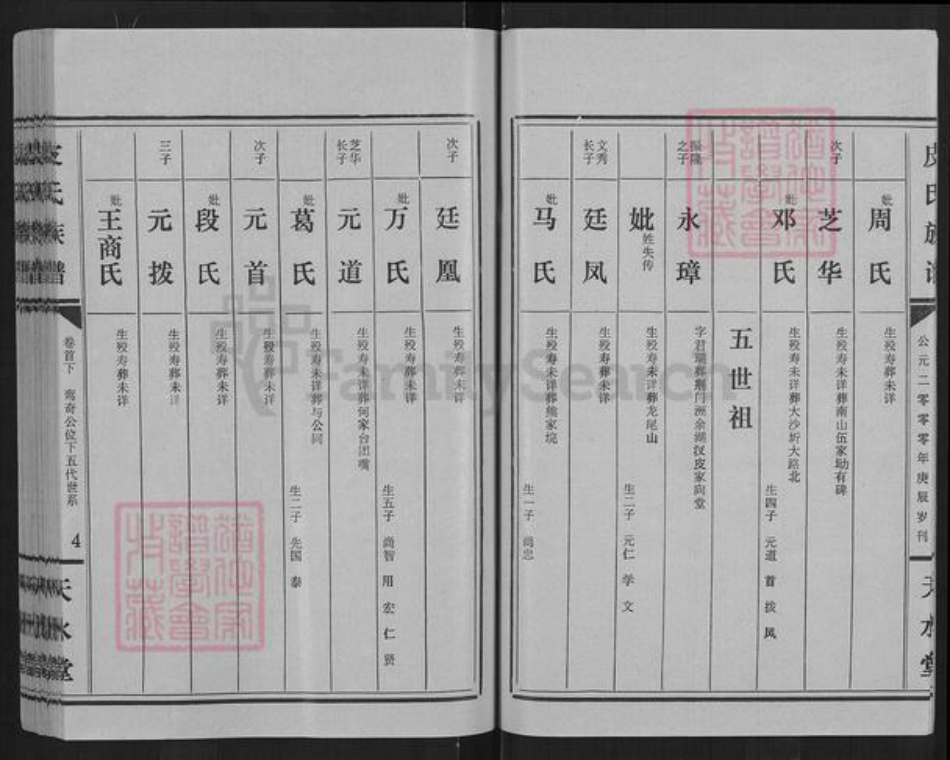 皮氏族谱
公元二零零零年庚辰岁刊
天水堂
妣周氏 生殁寿葬未详
次子 芝华 生殁寿未详葬南山伍家坳有碑
妣邓氏 生殁寿未详葬大沙圻大路北 生四子 元道 首 拨 凤
五世祖
之子 永璋 字君瑞葬荆门洲余湖汊皮家向堂
妣姓失传 生殁寿未详葬龙尾山 生二子 元仁 学文
文秀长子 廷凤 生殁寿葬未详
妣马氏 生殁寿未详葬熊家垸 生一子 尚忠
次子 廷凰 生殁寿葬未详
妣万氏 生殁寿葬未详 生五子 尚智 用 宏 仁 贤
芝华长子 元道 生殁寿未详葬何家台团嘴
妣葛氏 生殁寿未详葬与公同 生二子 先国 泰
次子 元首 生殁寿葬未详
妣段氏 生殁寿葬未详
三子 元拨 生殁寿葬未详
妣王商氏 生殁寿葬未详
皮氏族谱
卷首下 鸾奇公位下五代世系
4
天水堂
FamilySearch